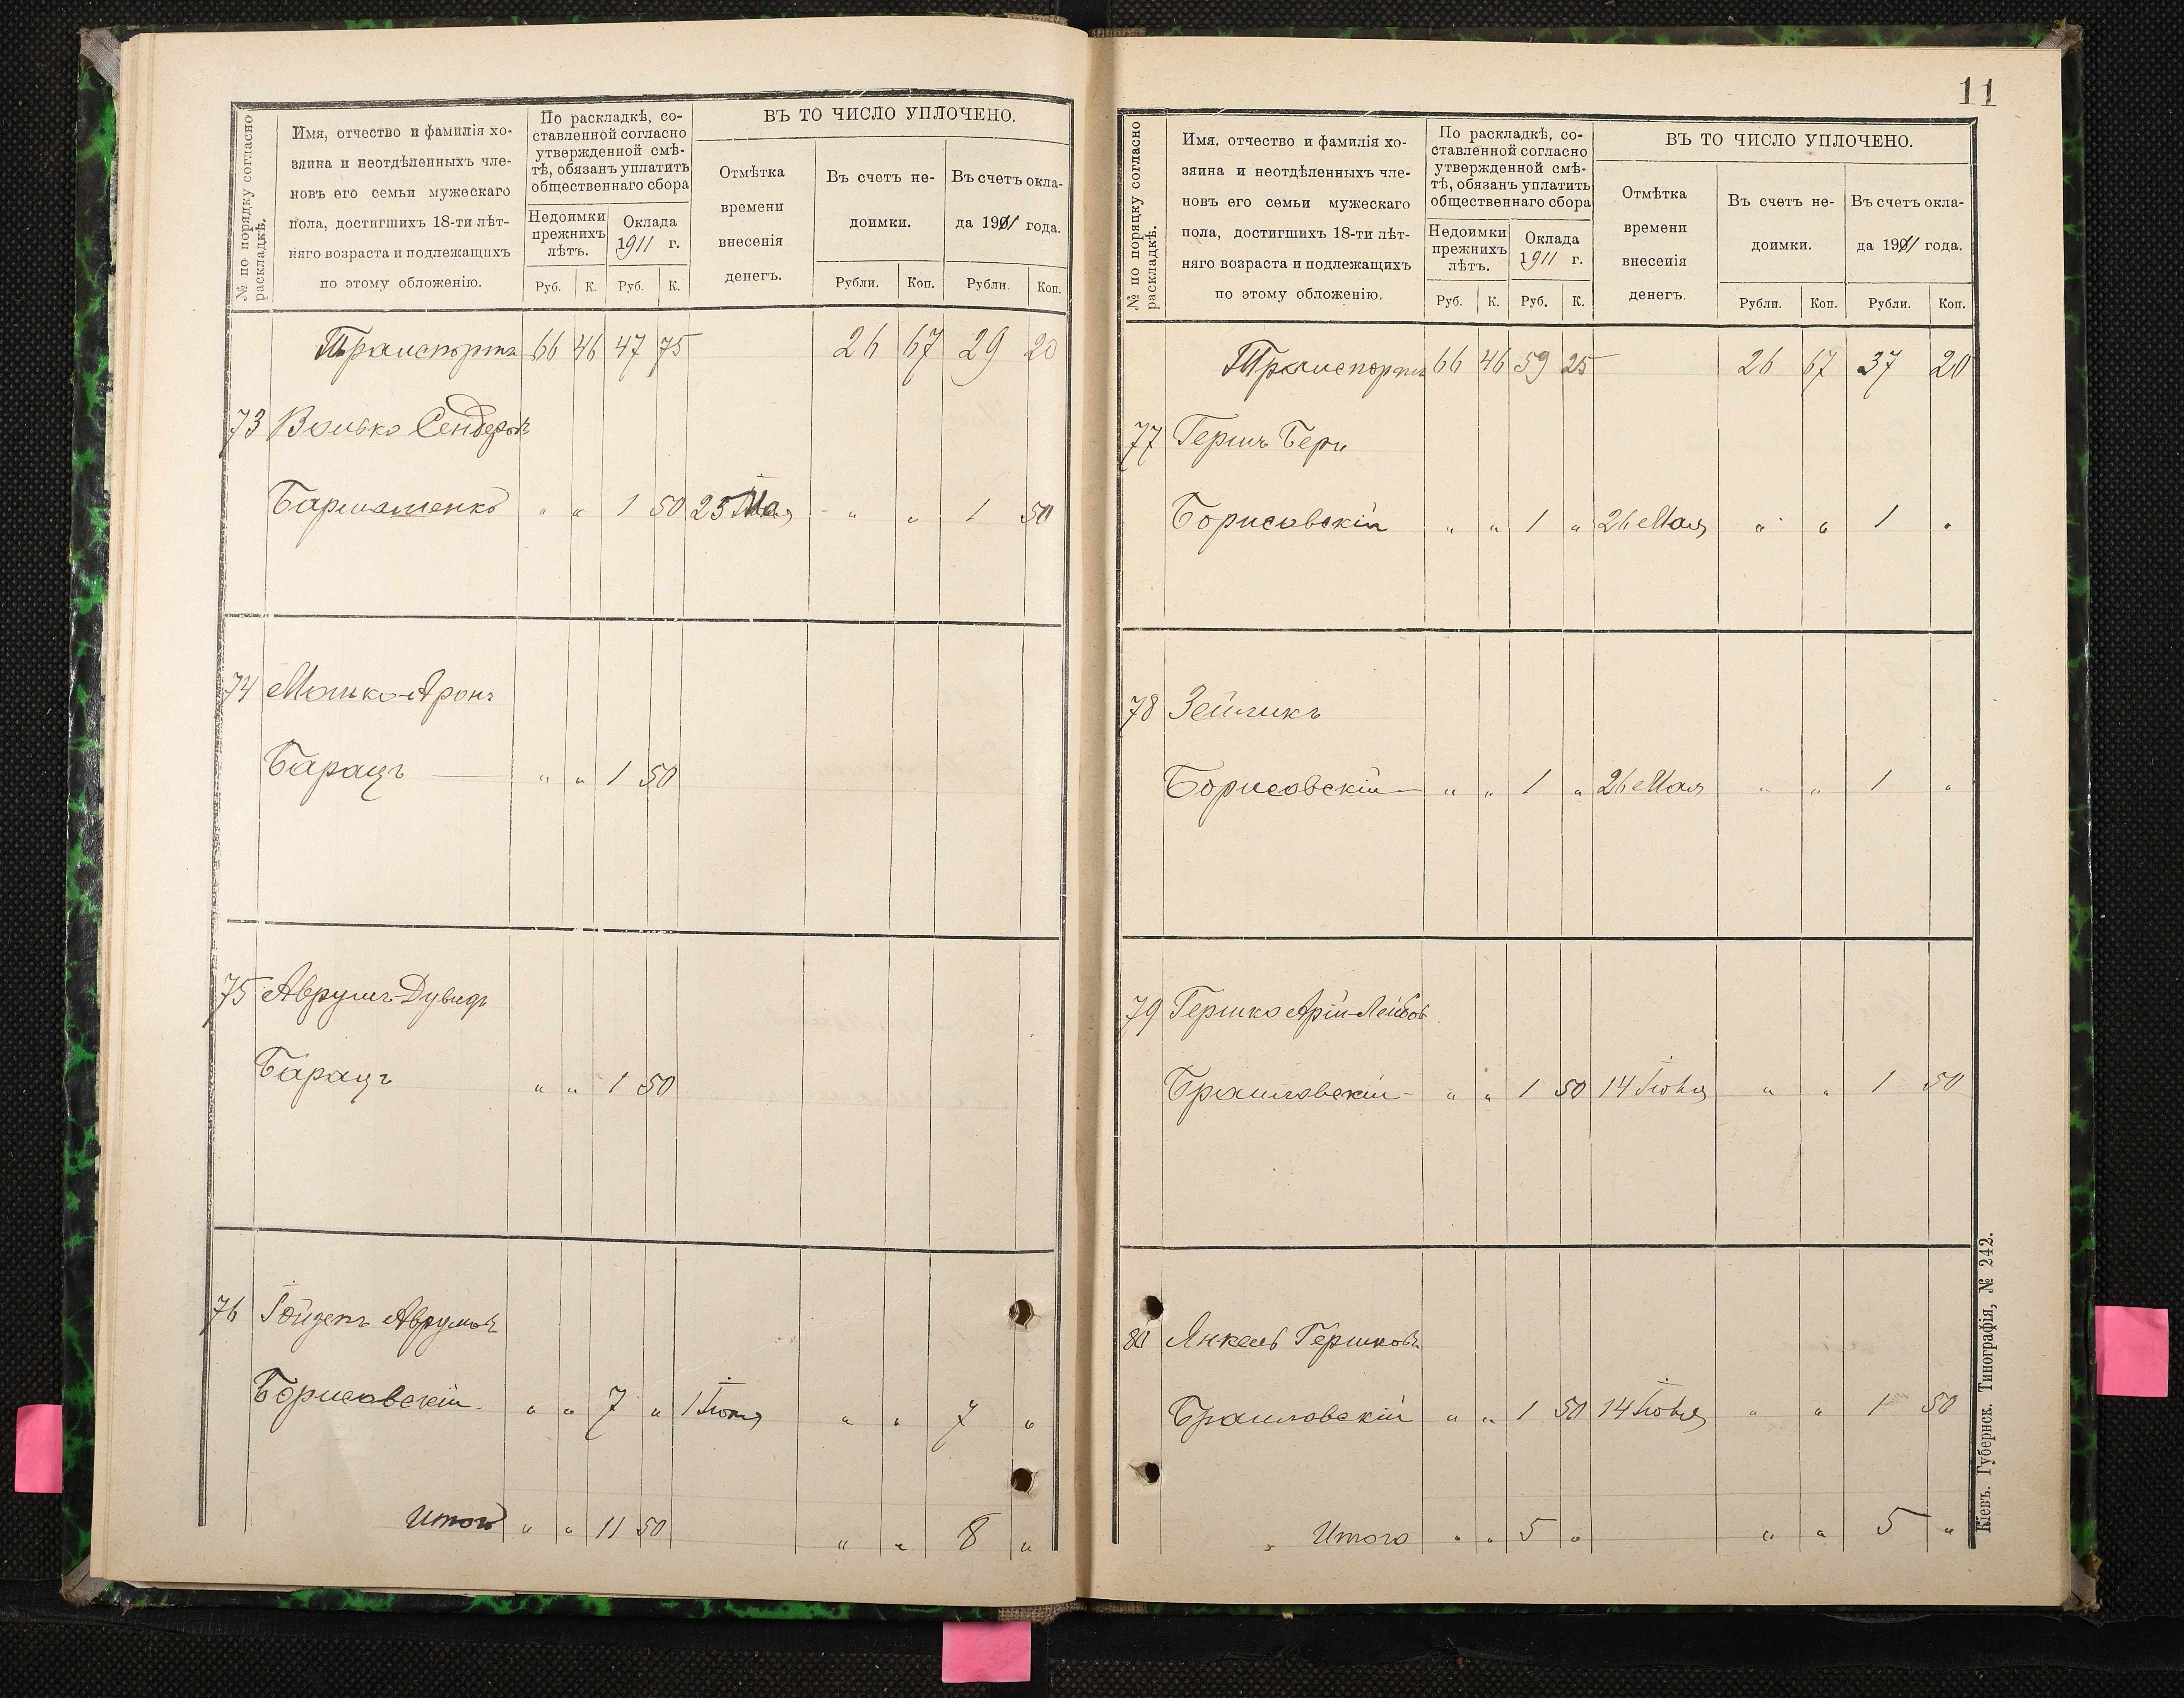 № по порядку согласно
раскладкѣ.
Имя, отчество и фамилія хо-
зяина и неотдѣленныхъ чле-
новъ его семьи мужескаго
пола, достигшихъ 18-ти лѣт-
няго возраста и подлежащихъ
по этому обложенію.
По раскладкѣ, со-
ставленной согласно
утвержденной смѣ-
тѣ, обязанъ уплатить
общественнаго сбора
Недоимки
прежнихъ
лѣтъ.
Оклада
1911 г.
Руб. К. Руб. К.
ВЪ ТО ЧИСЛО УПЛОЧЕНО.
Отмѣтка
времени
внесенія
денегъ.
Въ счетъ не-
доимки.
Въ счетъ окла-
да 1911 года.
Рубли. Коп. Рубли. Коп.
Транспортъ 66 46 47 75 26 67 29 20
73 Волько Сендеровъ
Бармашенко " " 1 50 25 Мая " " 1 50
74 Мошко-Аронъ
Барацъ " " 1 50
75 Аврумъ-Дувидъ
Барацъ " " 1 50
76 Аврумовъ
Борисовскій " " 7 " 1 Іюня " " 7 "
Итого " " 11 50 " " 8 "
11
№ по порядку согласно
раскладкѣ.
Имя, отчество и фамилія хо-
зяина и неотдѣленныхъ чле-
новъ его семьи мужескаго
пола, достигшихъ 18-ти лѣт-
няго возраста и подлежащихъ
по этому обложенію.
По раскладкѣ, со-
ставленной согласно
утвержденной смѣ-
тѣ, обязанъ уплатить
общественнаго сбора
Недоимки
прежнихъ
лѣтъ.
Оклада
1911 г.
Руб. К. Руб. К.
ВЪ ТО ЧИСЛО УПЛОЧЕНО.
Отмѣтка
времени
внесенія
денегъ.
Въ счетъ не-
доимки.
Въ счетъ окла-
да 1911 года.
Рубли. Коп. Рубли. Коп.
Транспортъ 66 46 59 25 26 67 37 20
77 Гершъ Беръ
Борисовскій " " 1 " 26 Мая " " 1 "
78 Зейликъ
Борисовскій " " 1 " 26 Мая " " 1 "
79 Гершко Арій-Лейбов
Браиловскій " " 1 50 14 Іюня " " 1 50
80 Янкель Гершковъ
Браиловскій " " 1 50 14 Іюня " " 1 50
Итого " " 5 " " " 5 "
Кіевъ. Губернск. Типографія, № 242.